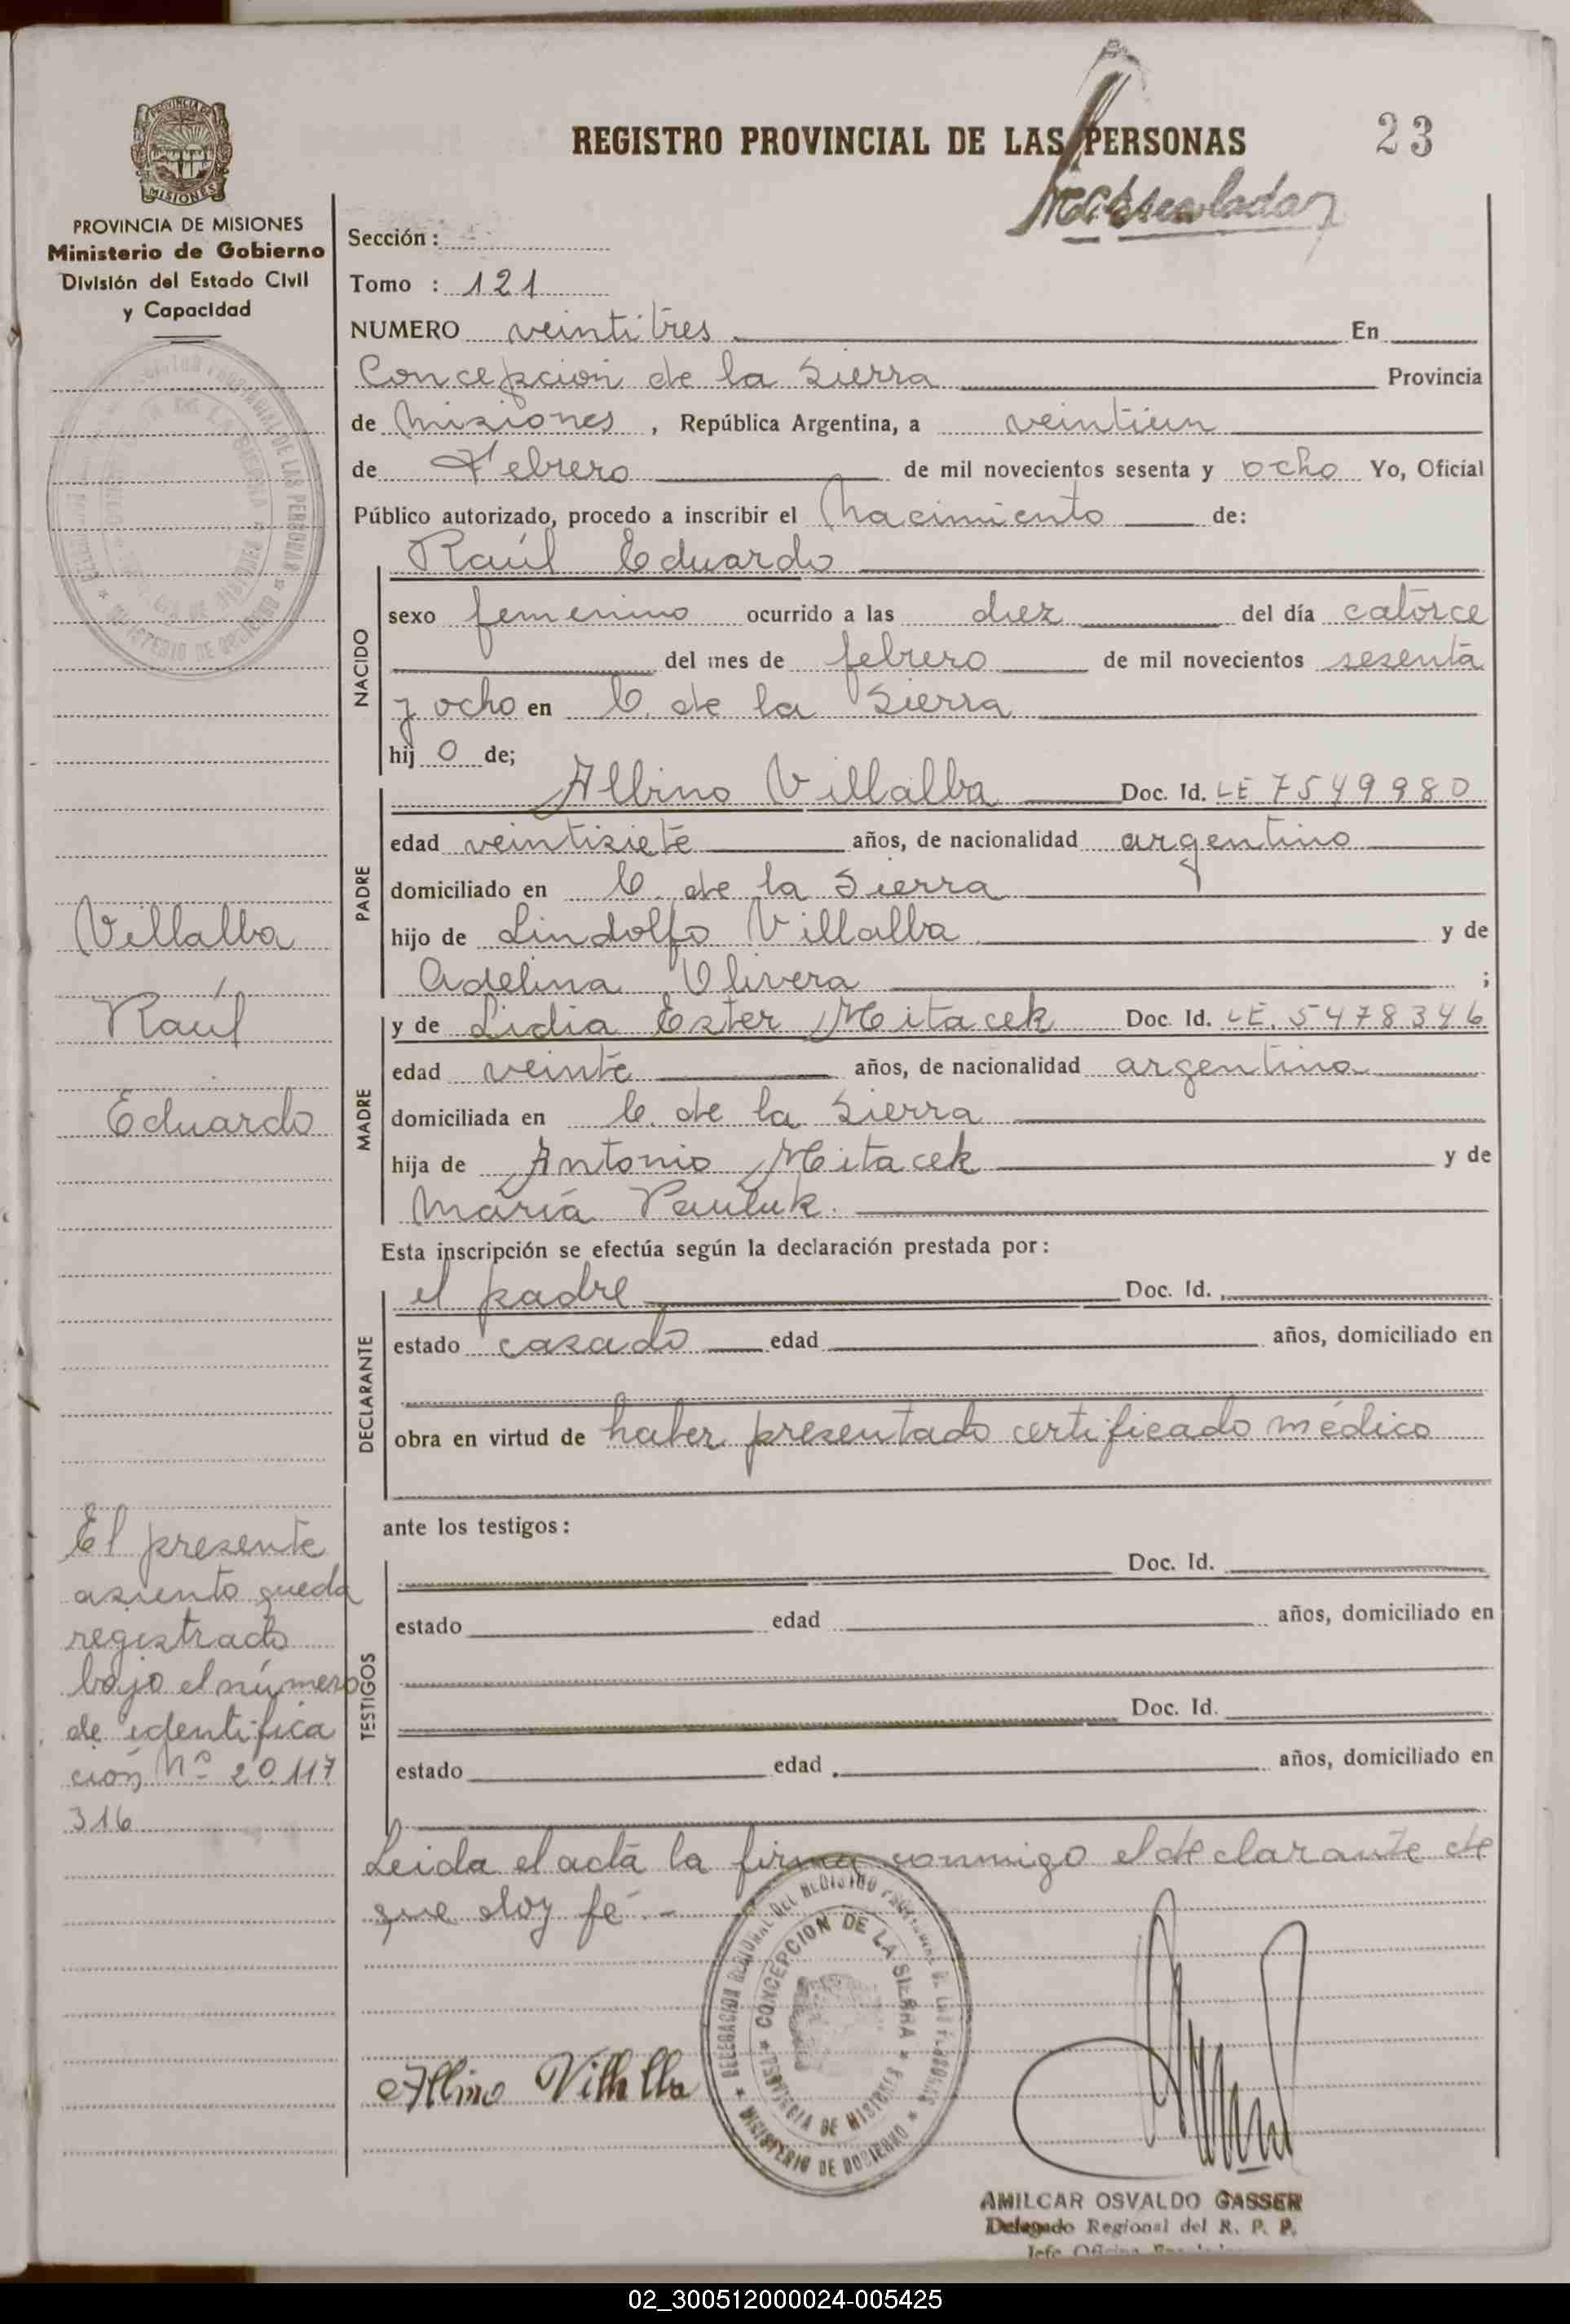 REGISTRO PROVINCIAL DE LAS PERSONAS
23
PROVINCIA DE MISIONES
Ministerio de Gobierno
División del Estado Civil
y Capacidad
Sección :
Tomo : 121
NUMERO veintitres En
Concepcion de la Sierra Provincia
de Misiones , República Argentina, a veintiun
de Febrero de mil novecientos sesenta y ocho Yo, Oficial
Público autorizado, procedo a inscribir el Nacimiento de:
Raúl Eduardo
NACIDO
sexo femenino ocurrido a las diez del día catorce
del mes de febrero de mil novecientos sesenta
y ocho en C. de la Sierra
hij o de;
PADRE
Albino Villalba Doc. Id. LE 7549980
edad veintisiete años, de nacionalidad argentino
domiciliado en C. de la Sierra
hijo de Lindolfo Villalba y de
Adelina Olivera ;
MADRE
y de Lidia Ester Mitacek Doc. Id. LE. 5478346
edad veinte años, de nacionalidad argentina
domiciliada en C. de la Sierra
hija de Antonio Mitacek y de
María Pauluk.
Esta inscripción se efectúa según la declaración prestada por:
DECLARANTE
el padre Doc. Id.
estado casado edad años, domiciliado en
obra en virtud de haber presentado certificado médico
ante los testigos:
TESTIGOS
Doc. Id.
estado edad años, domiciliado en
Doc. Id.
estado edad años, domiciliado en
Leida el acta la firma conmigo el declarante de
que doy fé.-
Villalba
Raúl
Eduardo
El presente
asiento queda
registrado
bajo el número
de identifica
ción Nº 20.117
316
Albino Villalba
DELEGACION REGIONAL DEL REGISTRO PROVINCIAL DE LAS PERSONAS
CONCEPCION DE LA SIERRA
PROVINCIA DE MISIONES
MINISTERIO DE GOBIERNO
AMILCAR OSVALDO GASSER
Delegado Regional del R. P. P.
02_300512000024-005425